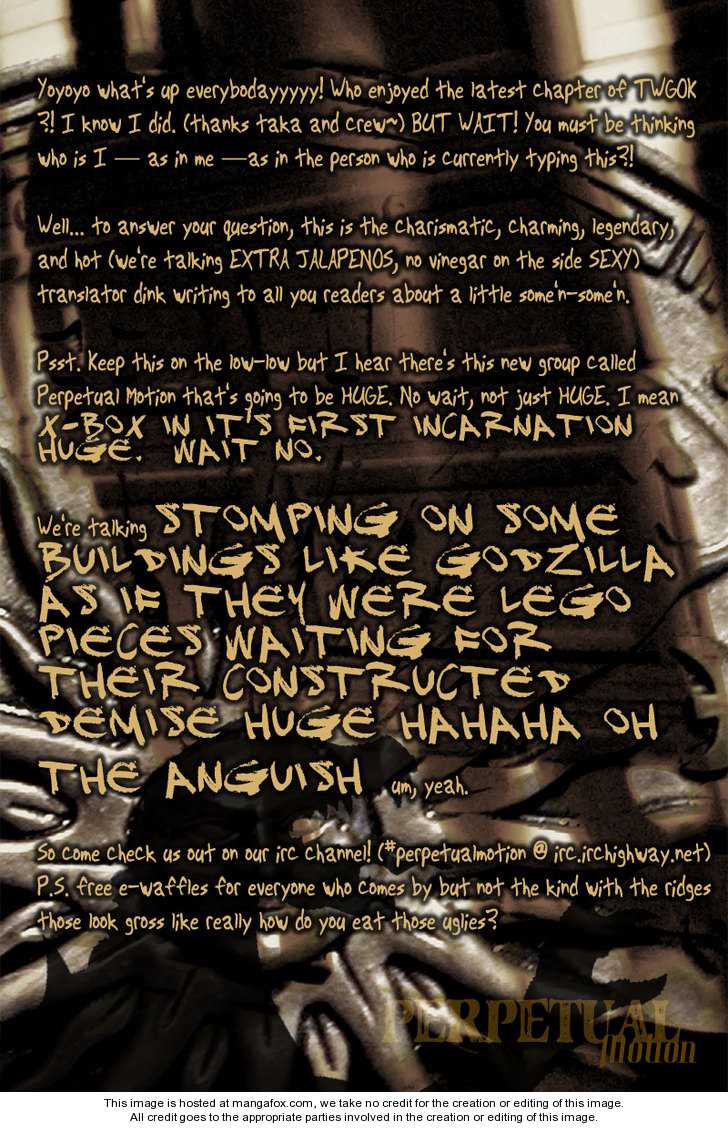 Yoyoyo what's up everybodayyyyy! Who enjoyed the latest chapter of TWGOK
?! I know I did. (thanks taka and crew~) BUT WAIT! You must be thinking
who is I — as in me —as in the person who is currently typing this?!
Well... to answer your question, this is the charismatic, charming, legendary,
and hot (we're talking EXTRA JALAPENOS, no vinegar on the side SEXY)
translator dink writing to all you readers about a little some'n-some'n.
Psst. Keep this on the low-low but I hear there's this new group called
Perpetual Motion that's going to be HUGE. No wait, not just HUGE. I mean
X-BOX IN IT'S FIRST INCARNATION
HUGE. WAIT NO.
We're talking STOMPING ON SOME
BUILDINGS LIKE GODZILLA
AS IF THEY WERE LEGO
PIECES WAITING FOR
THEIR CONSTRUCTED
DEMISE HUGE HAHAHA OH
THE ANGUISH um, yeah.
So come check us out on our irc channel! (#perpetualmotion @ irc.irchighway.net)
P.S. free e-waffles for everyone who comes by but not the kind with the ridges
those look gross like really how do you eat those uglies?
PERPETUAL
Motion
This image is hosted at mangafox.com, we take no credit for the creation or editing of this image.
All credit goes to the appropriate parties involved in the creation or editing of this image.